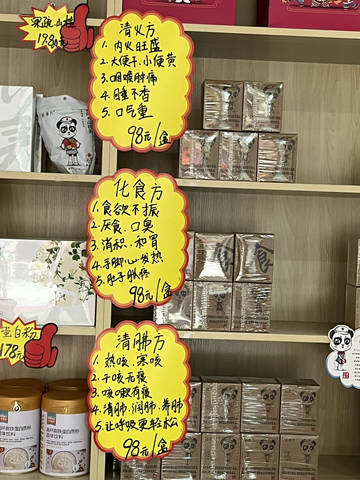 198元
清火方
1. 内火旺盛
2. 大便干、小便黄
3. 咽喉肿痛
4. 睡不香
5. 口气重
98元/盒
化食方
1. 食欲不振
2. 厌食、口臭
3. 消积、和胃
4. 手脚心发热
5. 肚子胀疼
98元/盒
蛋白粉
178元
清肺方
1. 热咳、寒咳
2. 干咳无痰
3. 咳嗽有痰
4. 清肺、润肺、养肺
5. 让呼吸更轻松
98元/盒